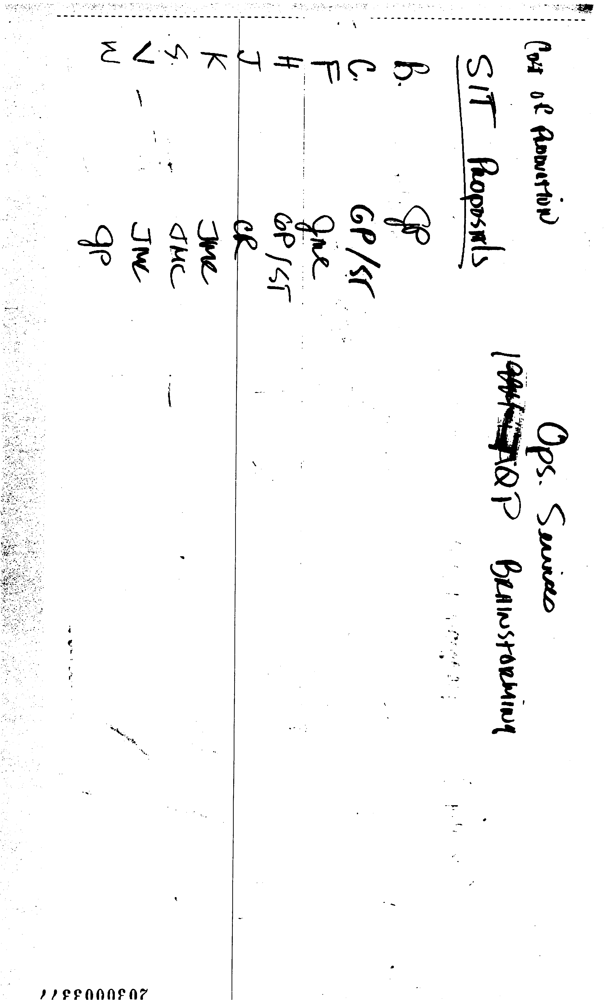 Ops. Services
AQP BRAINSTORMING
COST OF PRODUCTION
SIT Proposals
B. GP
C. GP/ST
F Jmc
H GP/ST
J CR
K JMC
S. JMC
V JMC
W GP